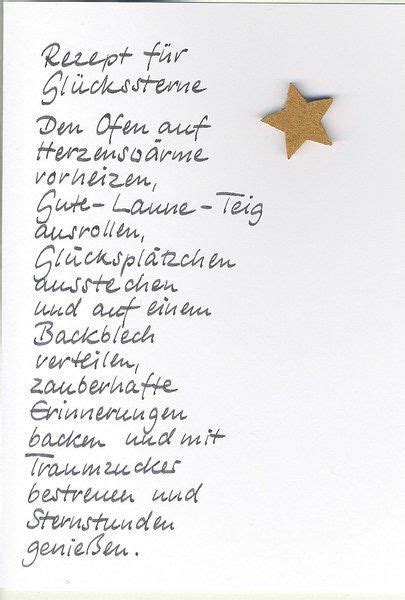 Rezept für
Glückssterne
Den Ofen auf
Herzenswärme
vorheizen,
Gute-Laune-Teig
ausrollen,
Glücksplätzchen
ausstechen
und auf einem
Backblech
verteilen,
zauberhafte
Erinnerungen
backen und mit
Traumzucker
bestreuen und
Sternstunden
genießen.